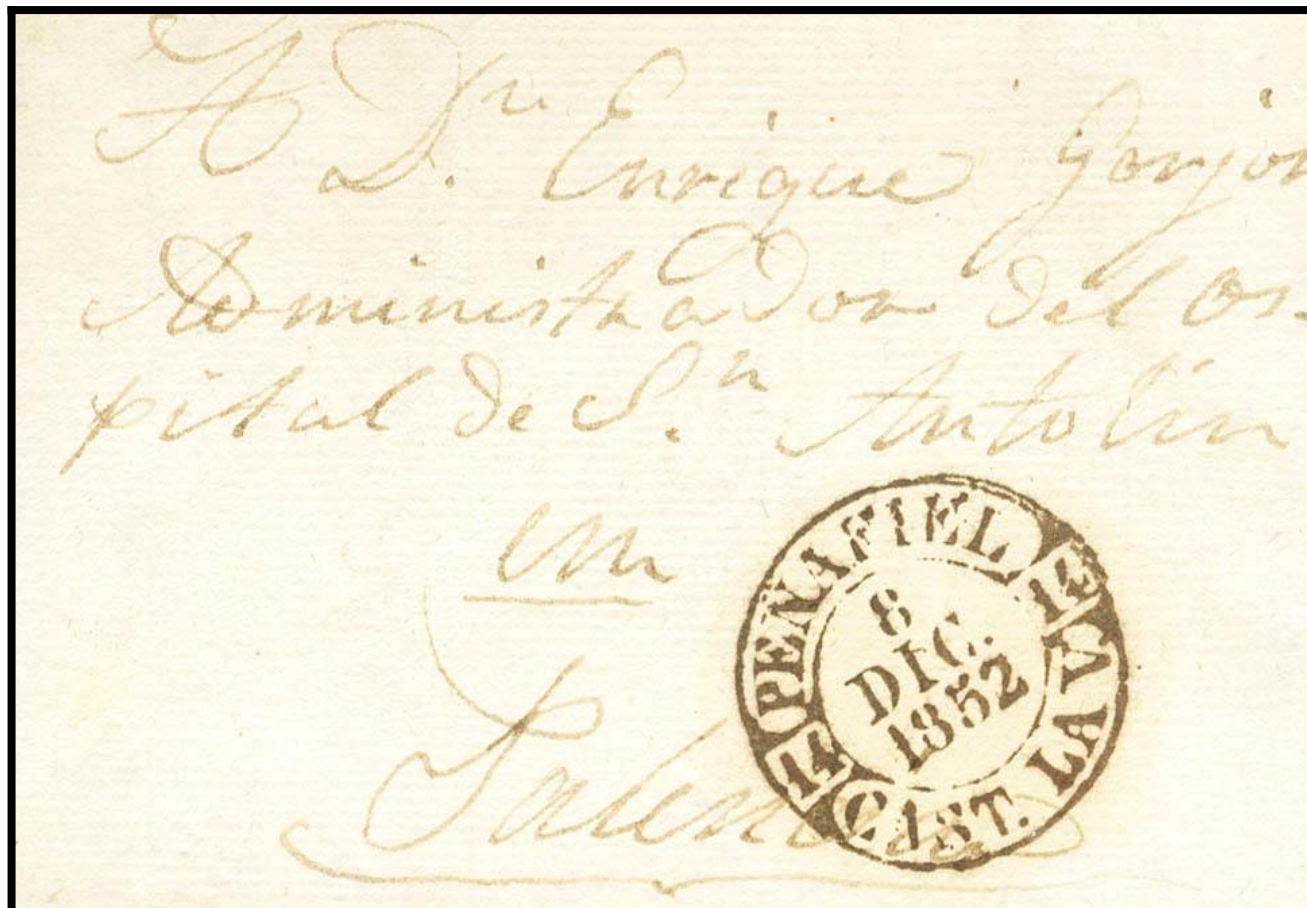 A Dn. Enrique Gorjon
Administrador del Os-
pital de Sn. Antolin
en
Palencia
PEÑAFIEL
14
8
DIC.
1852
14
CAST. LA V.